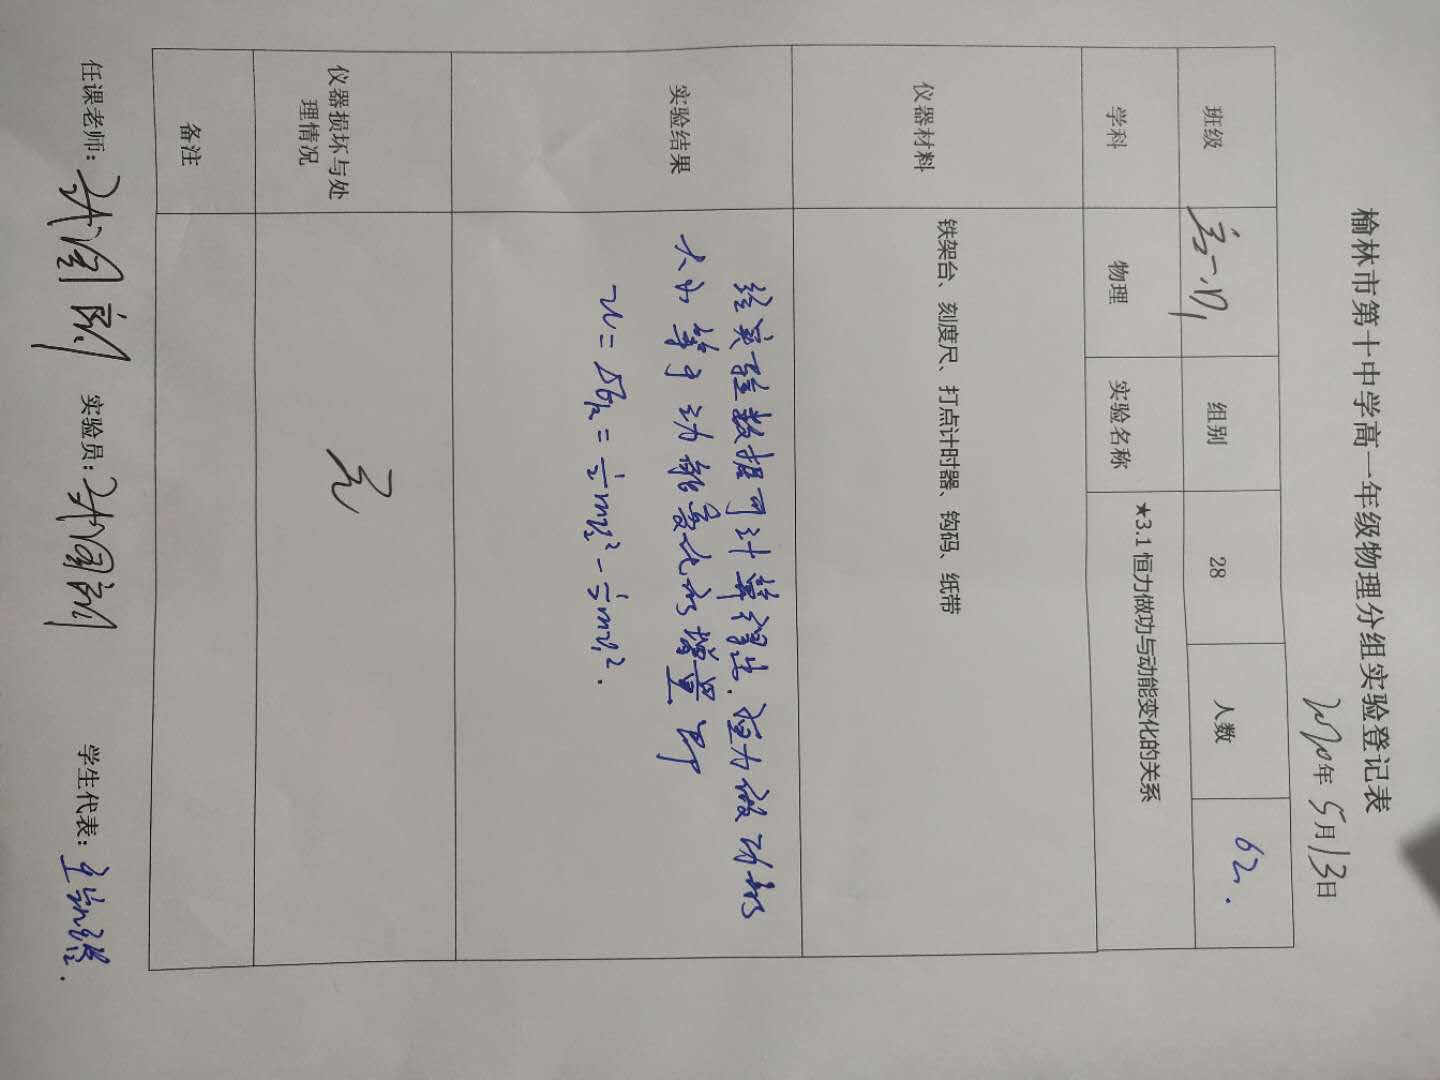 榆林市第十中学高一年级物理分组实验登记表
年5月13日
班级 组别 28 人数 62.
学科 物理 实验名称 ★3.1 恒力做功与动能变化的关系
仪器材料 铁架台、刻度尺、打点计时器、钩码、纸带
实验结果
经实验数据可计算得出.恒力做功的
大小等于动能变化的增量 即
w=ΔEk=½mv₂²-½mv₁².
仪器损坏与处
理情况
无
备注
任课老师: 实验员: 学生代表: